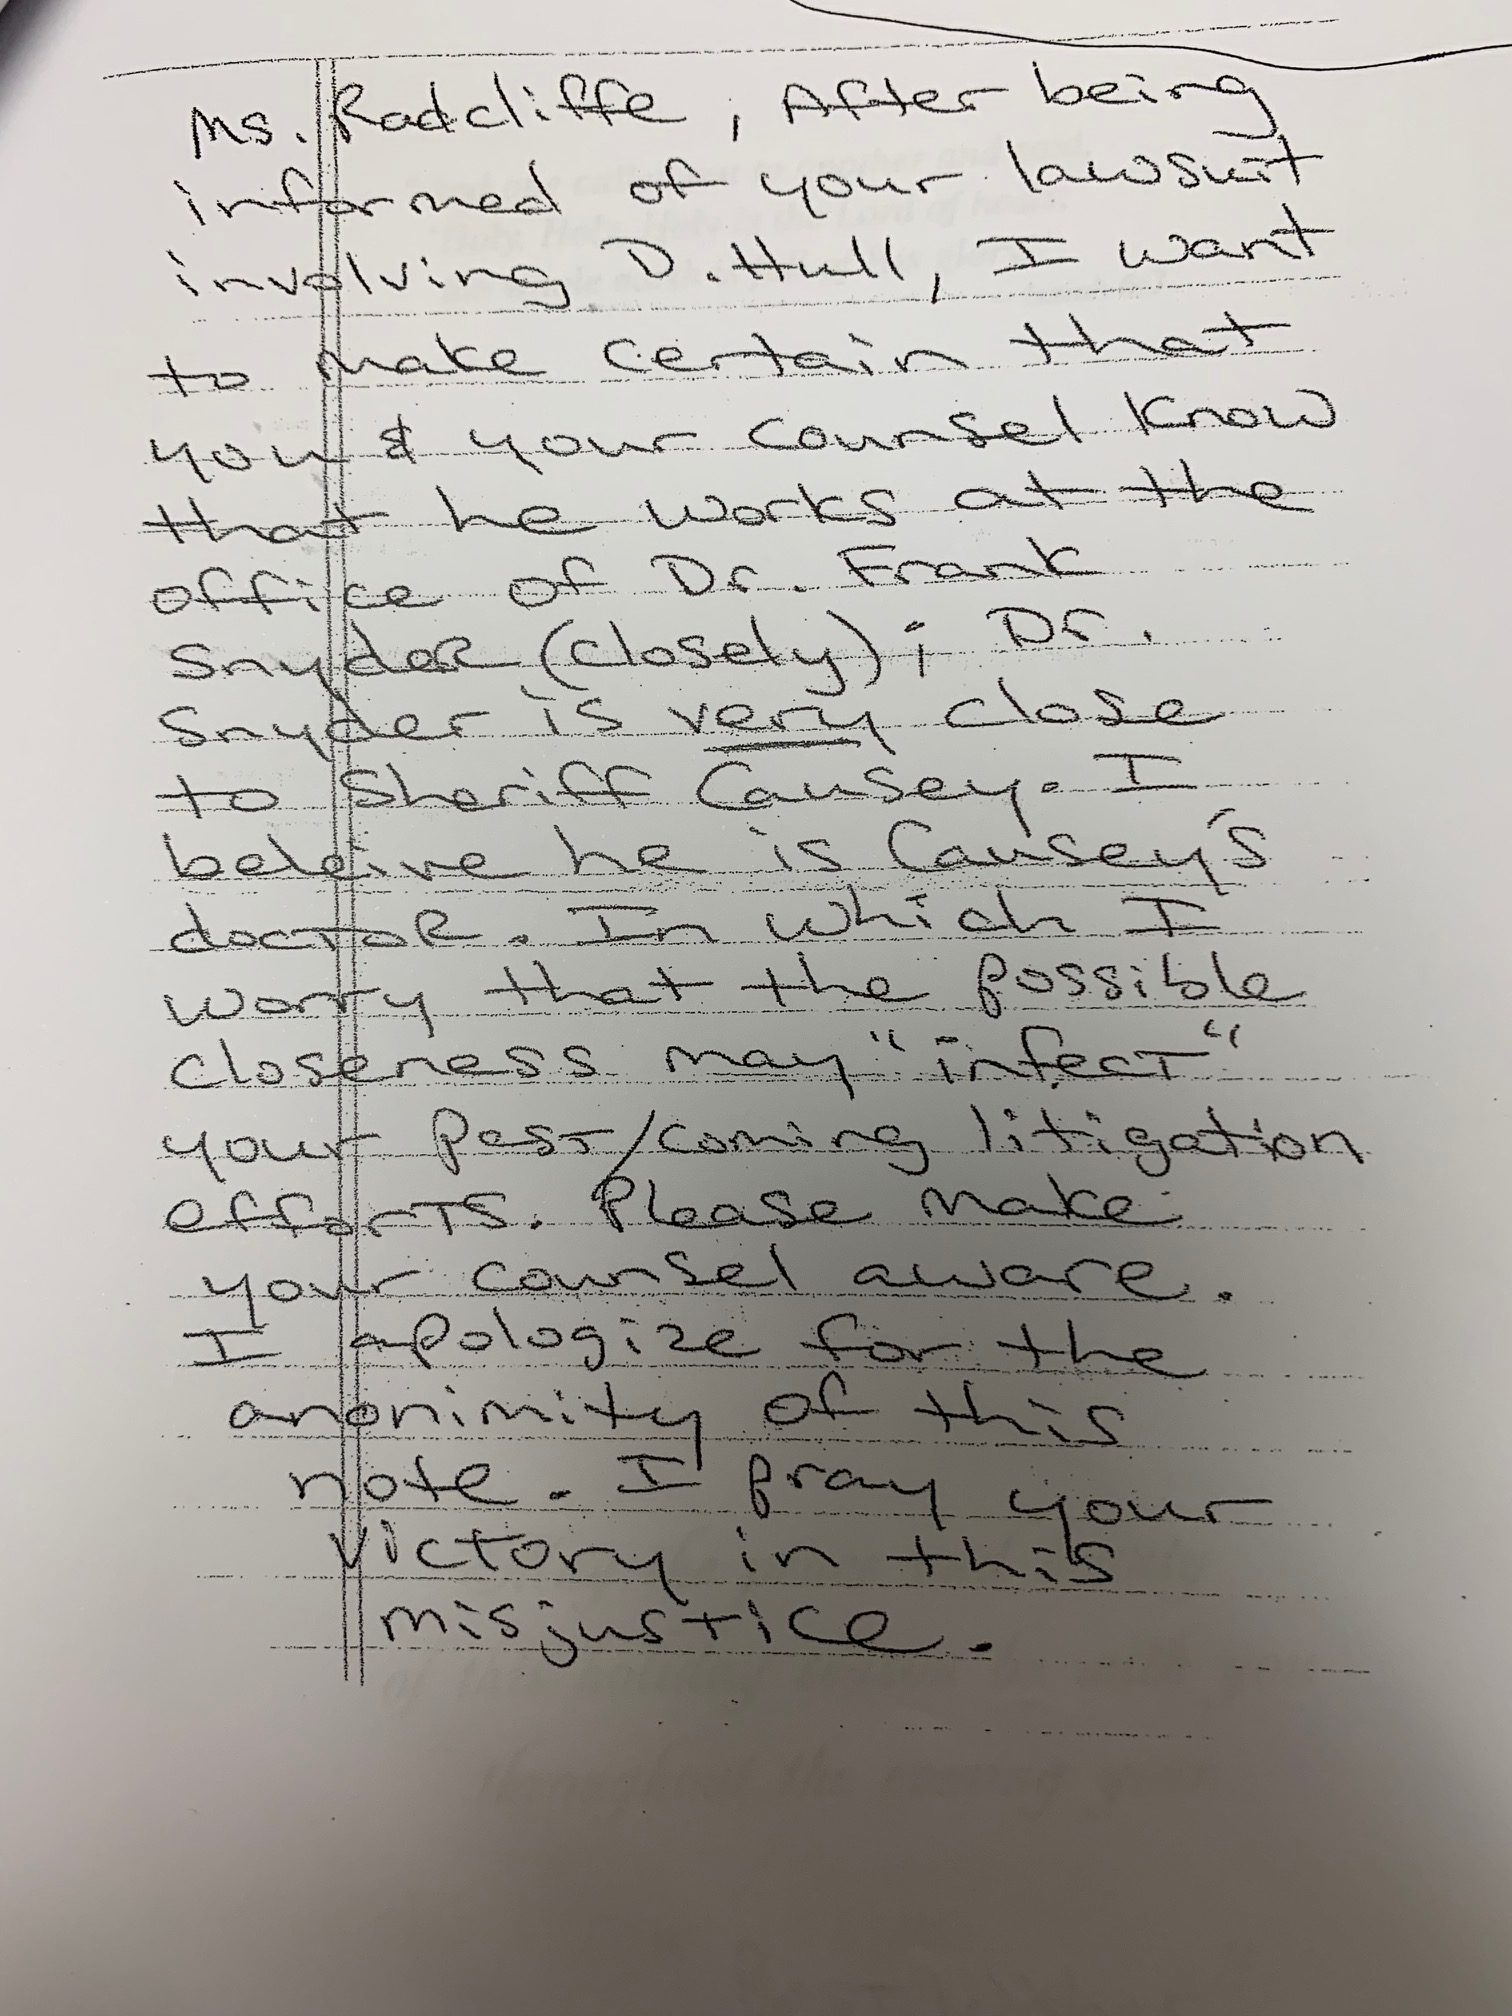 Ms. Radcliffe, After being
informed of your lawsuit
involving D. Hull, I want
to make certain that
you & your counsel know
that he works at the
office of Dr. Frank
Snyder (closely); Dr.
Snyder is very close
to Sheriff Causey. I
beleive he is Causey's
doctor. In which I
worry that the possible
closeness may "infect"
your past/coming litigation
efforts. Please make
your counsel aware.
I apologize for the
anonimity of this
note. I pray your
victory in this
misjustice.